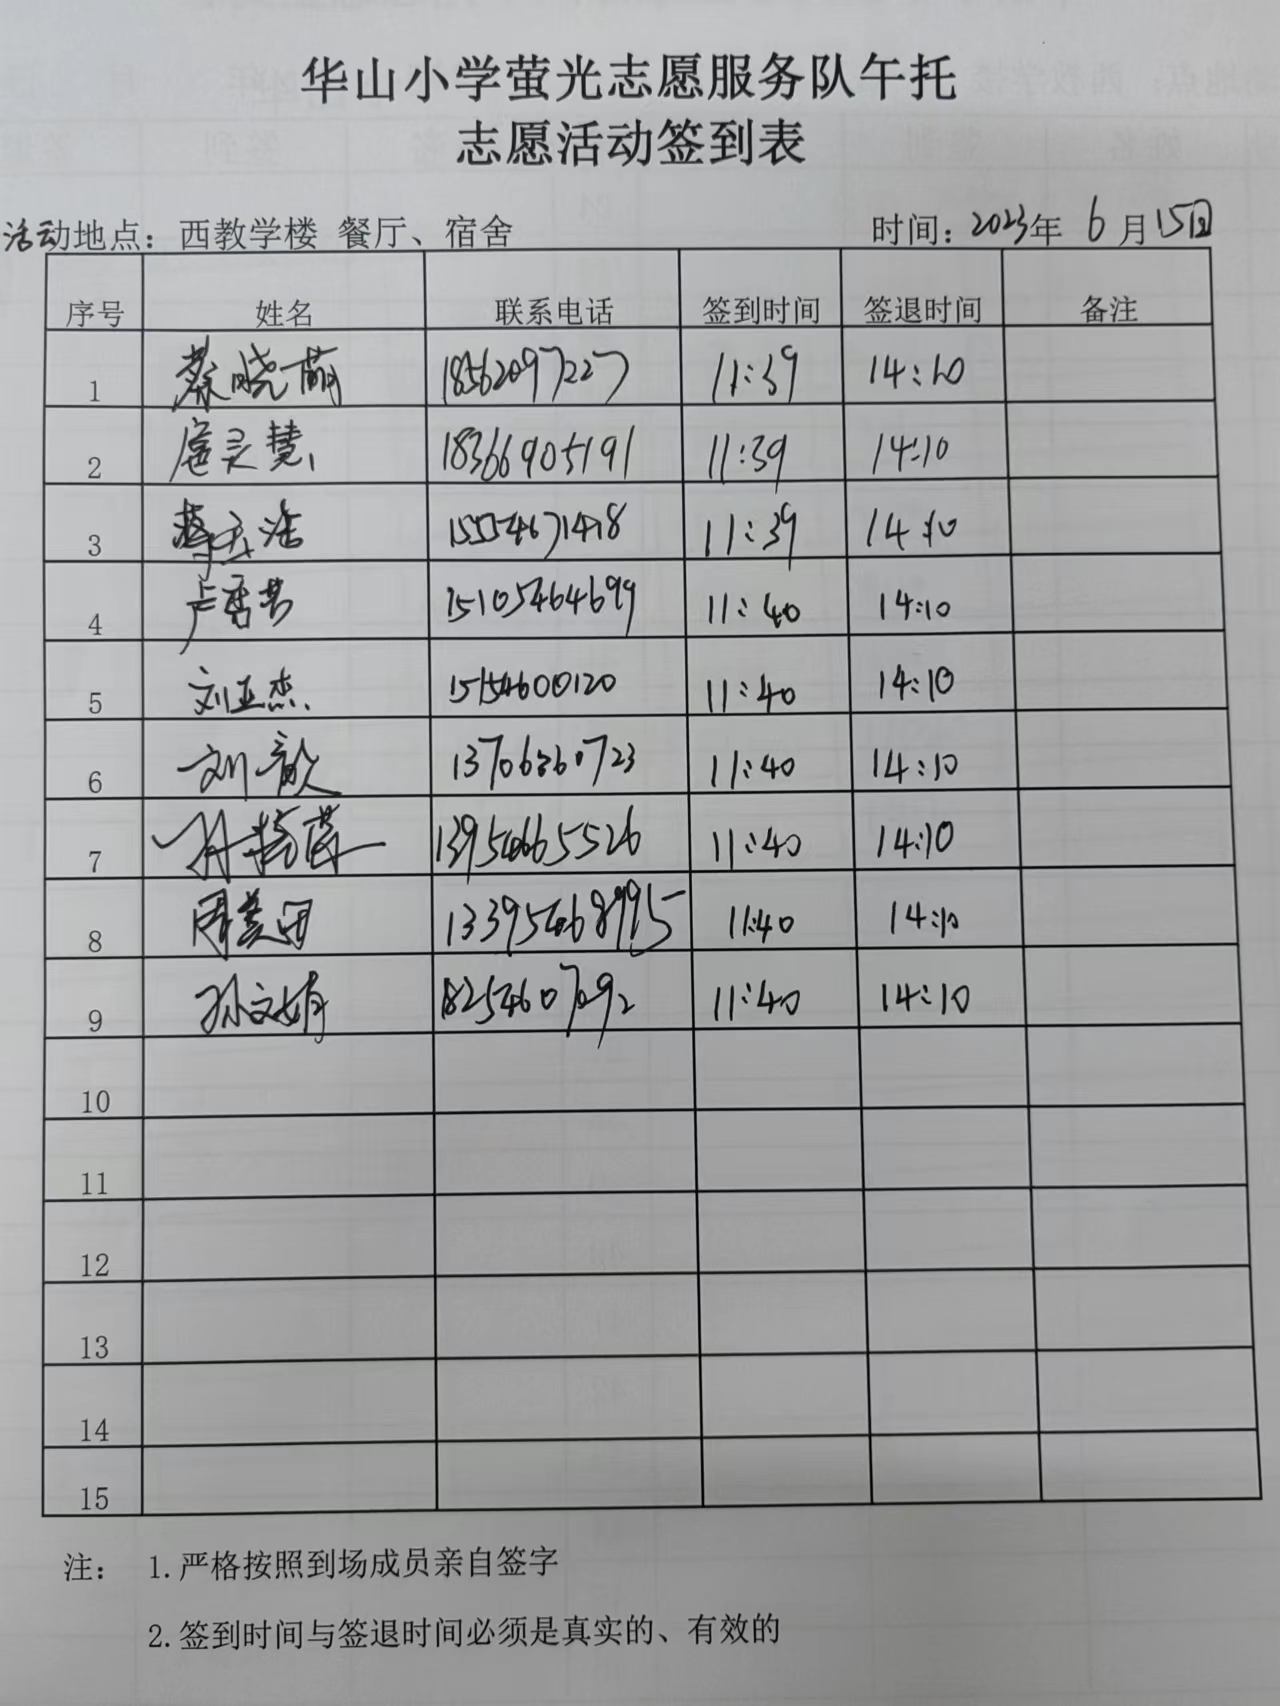 华山小学萤光志愿服务队午托
志愿活动签到表
活动地点：西教学楼 餐厅、宿舍 时间：2023年 6月15日
序号 姓名 联系电话 签到时间 签退时间 备注
1 蔡晓萌 18562097227 11:39 14:10
2 扈灵慧 18366905191 11:39 14:10
3 15554671418 11:39 14:10
4 卢 15105464699 11:40 14:10
5 刘亚杰 15154600120 11:40 14:10
6 刘歆 13706360723 11:40 14:10
7 13954665526 11:40 14:10
8 周美 13395468995 11:40 14:10
9 孙文婧 18254607092 11:40 14:10
10
11
12
13
14
15
注： 1.严格按照到场成员亲自签字
2.签到时间与签退时间必须是真实的、有效的